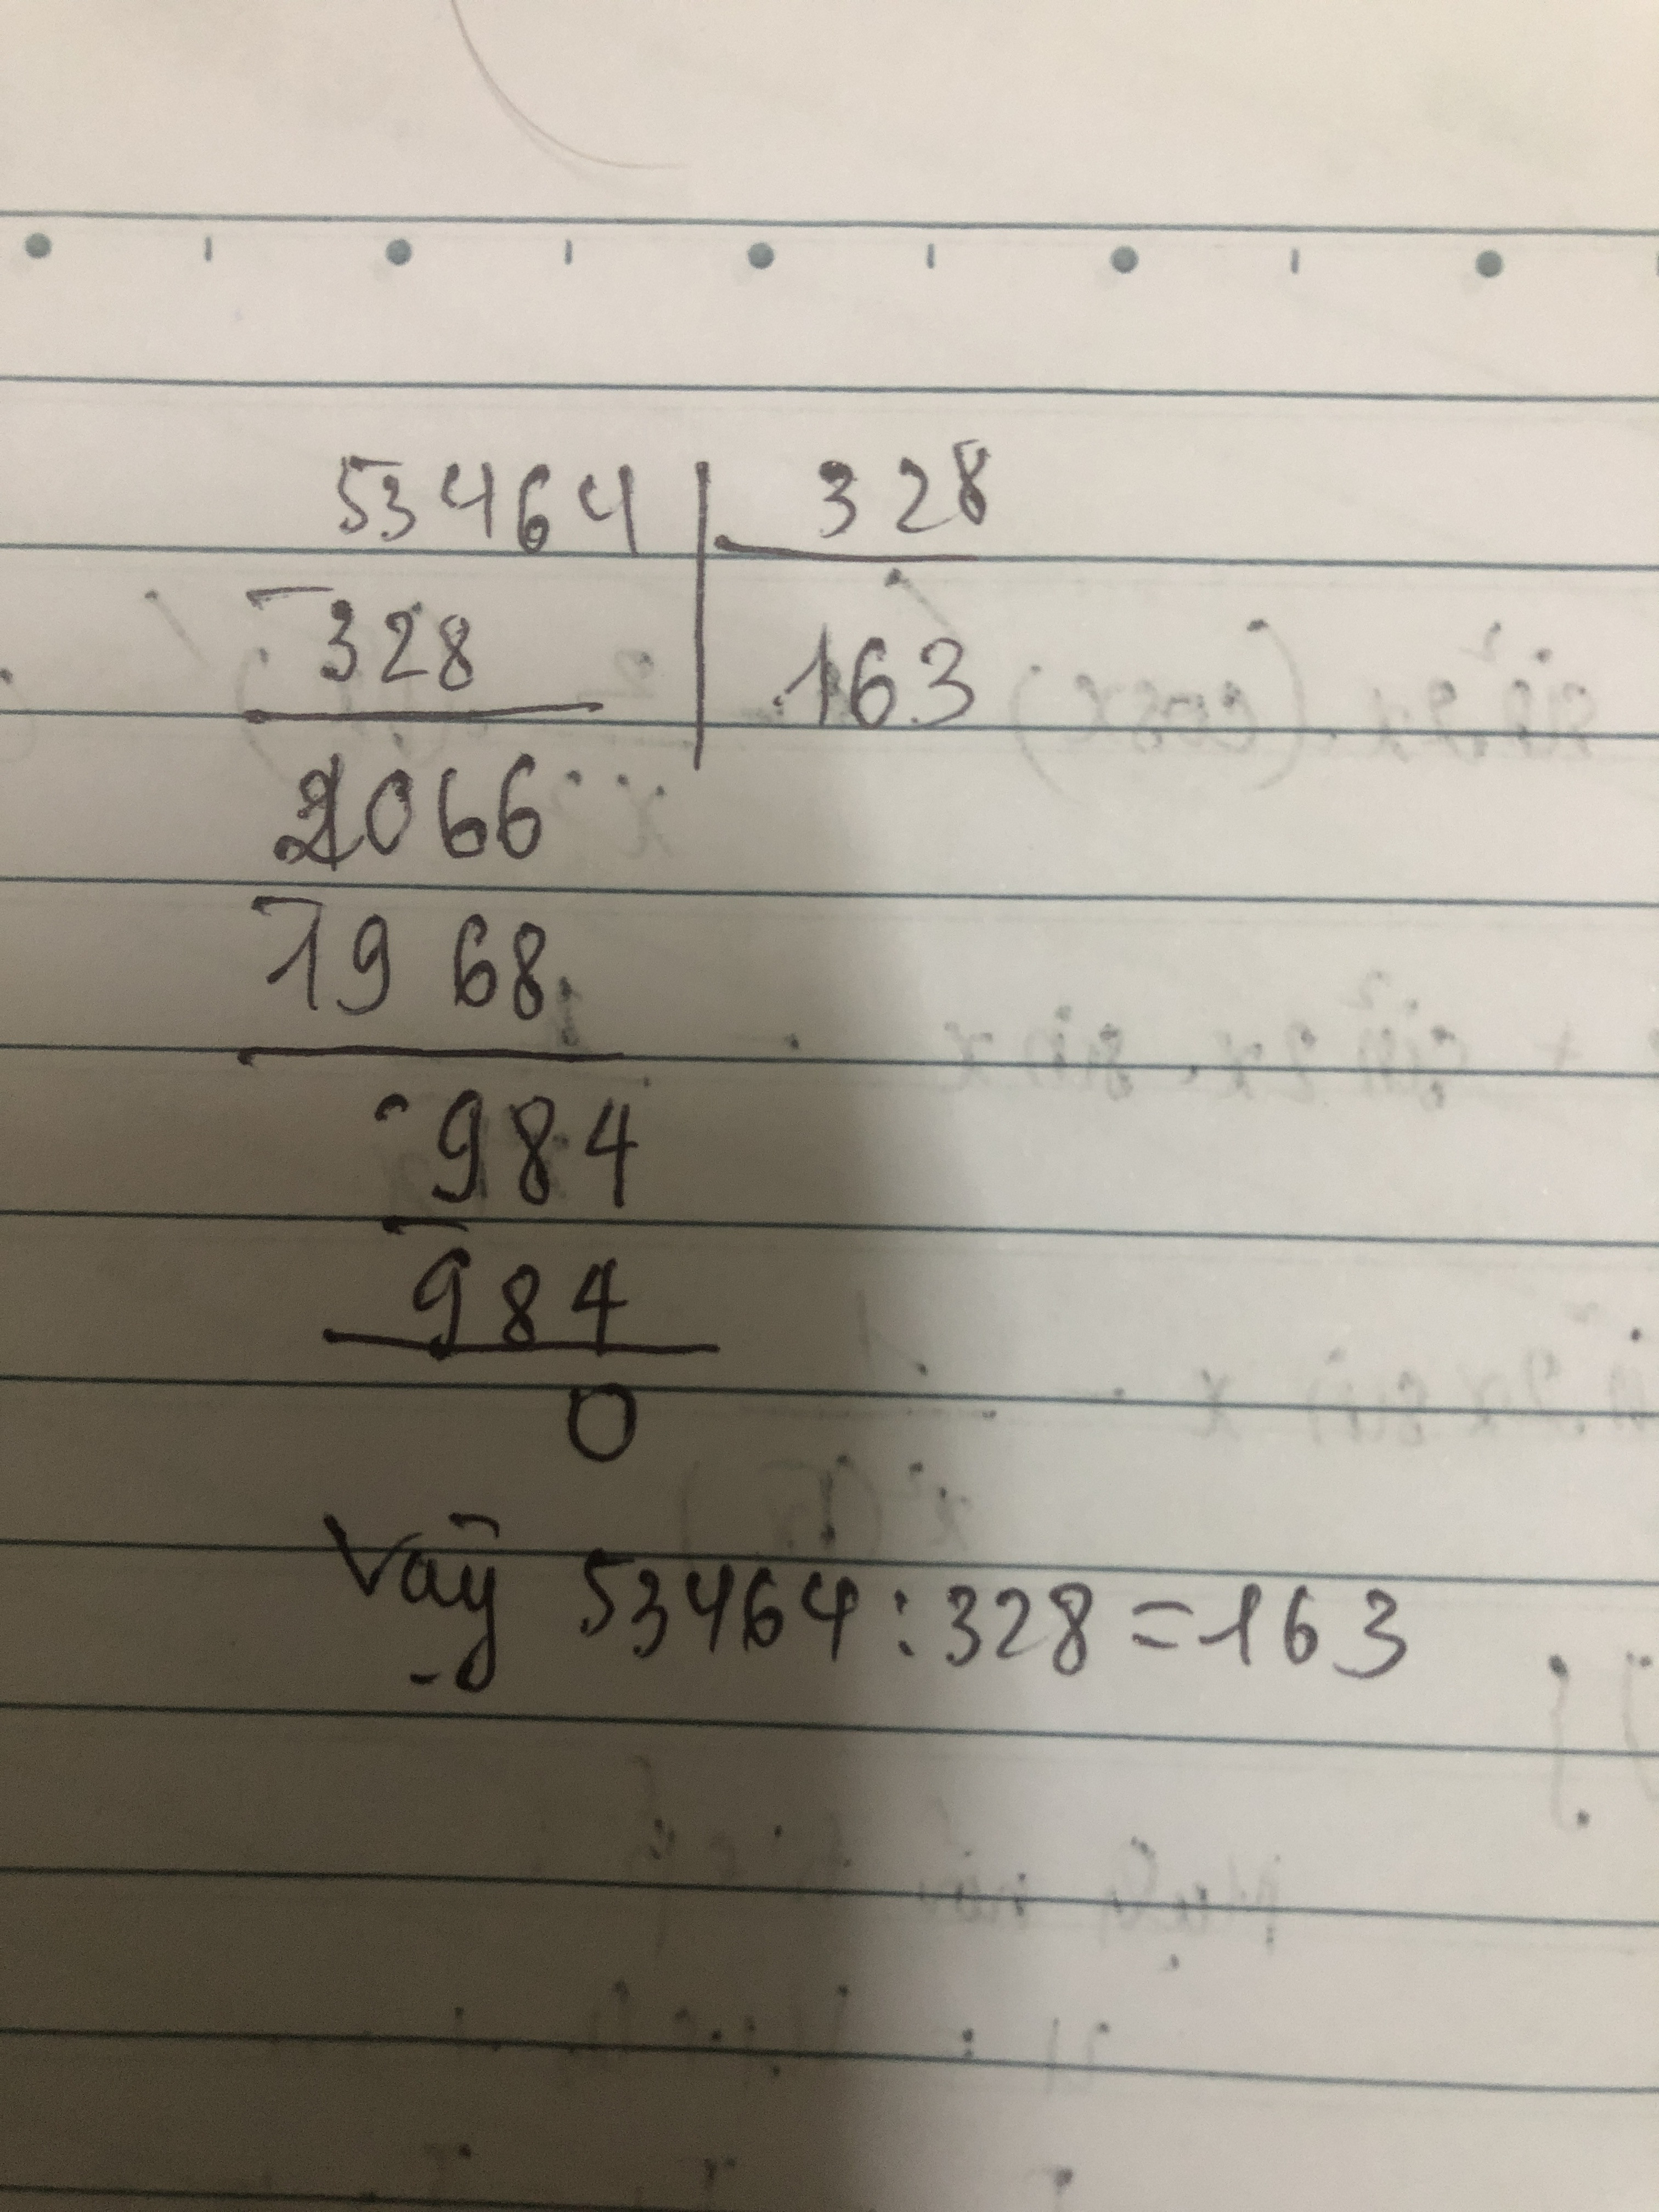 53464 328
328 163
2066
1968
984
984
0
Vậy 53464 : 328 = 163